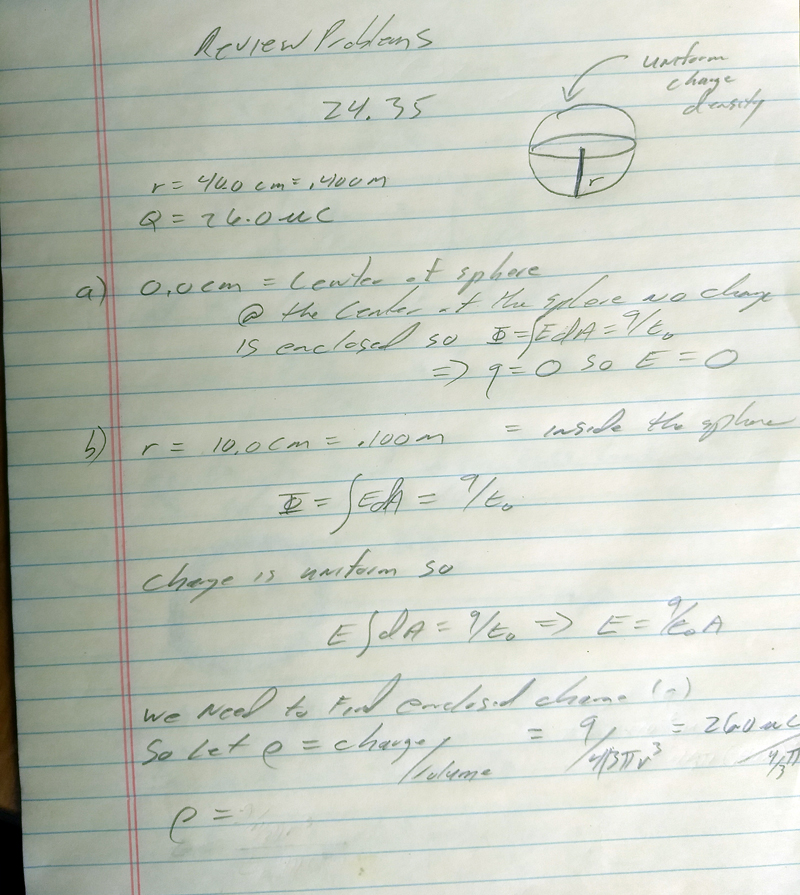 Review Problems
uniform
charge
density
24.35
r
r = 40.0 cm = .400m
Q = 26.0 uC
a) 0.0cm = Center of sphere
@ the center of the sphere no charge
is enclosed so Φ=∫EdA = q/ε₀
=> q=0 so E = 0
b) r = 10.0cm = .100m = inside the sphere
Φ = ∫EdA = q/ε₀
Charge is uniform so
E∫dA = q/ε₀ => E = q/ε₀A
We need to find enclosed charge
So Let ρ = charge/volume = q/4/3πr³ = 26.0 uC/4/3π
ρ =